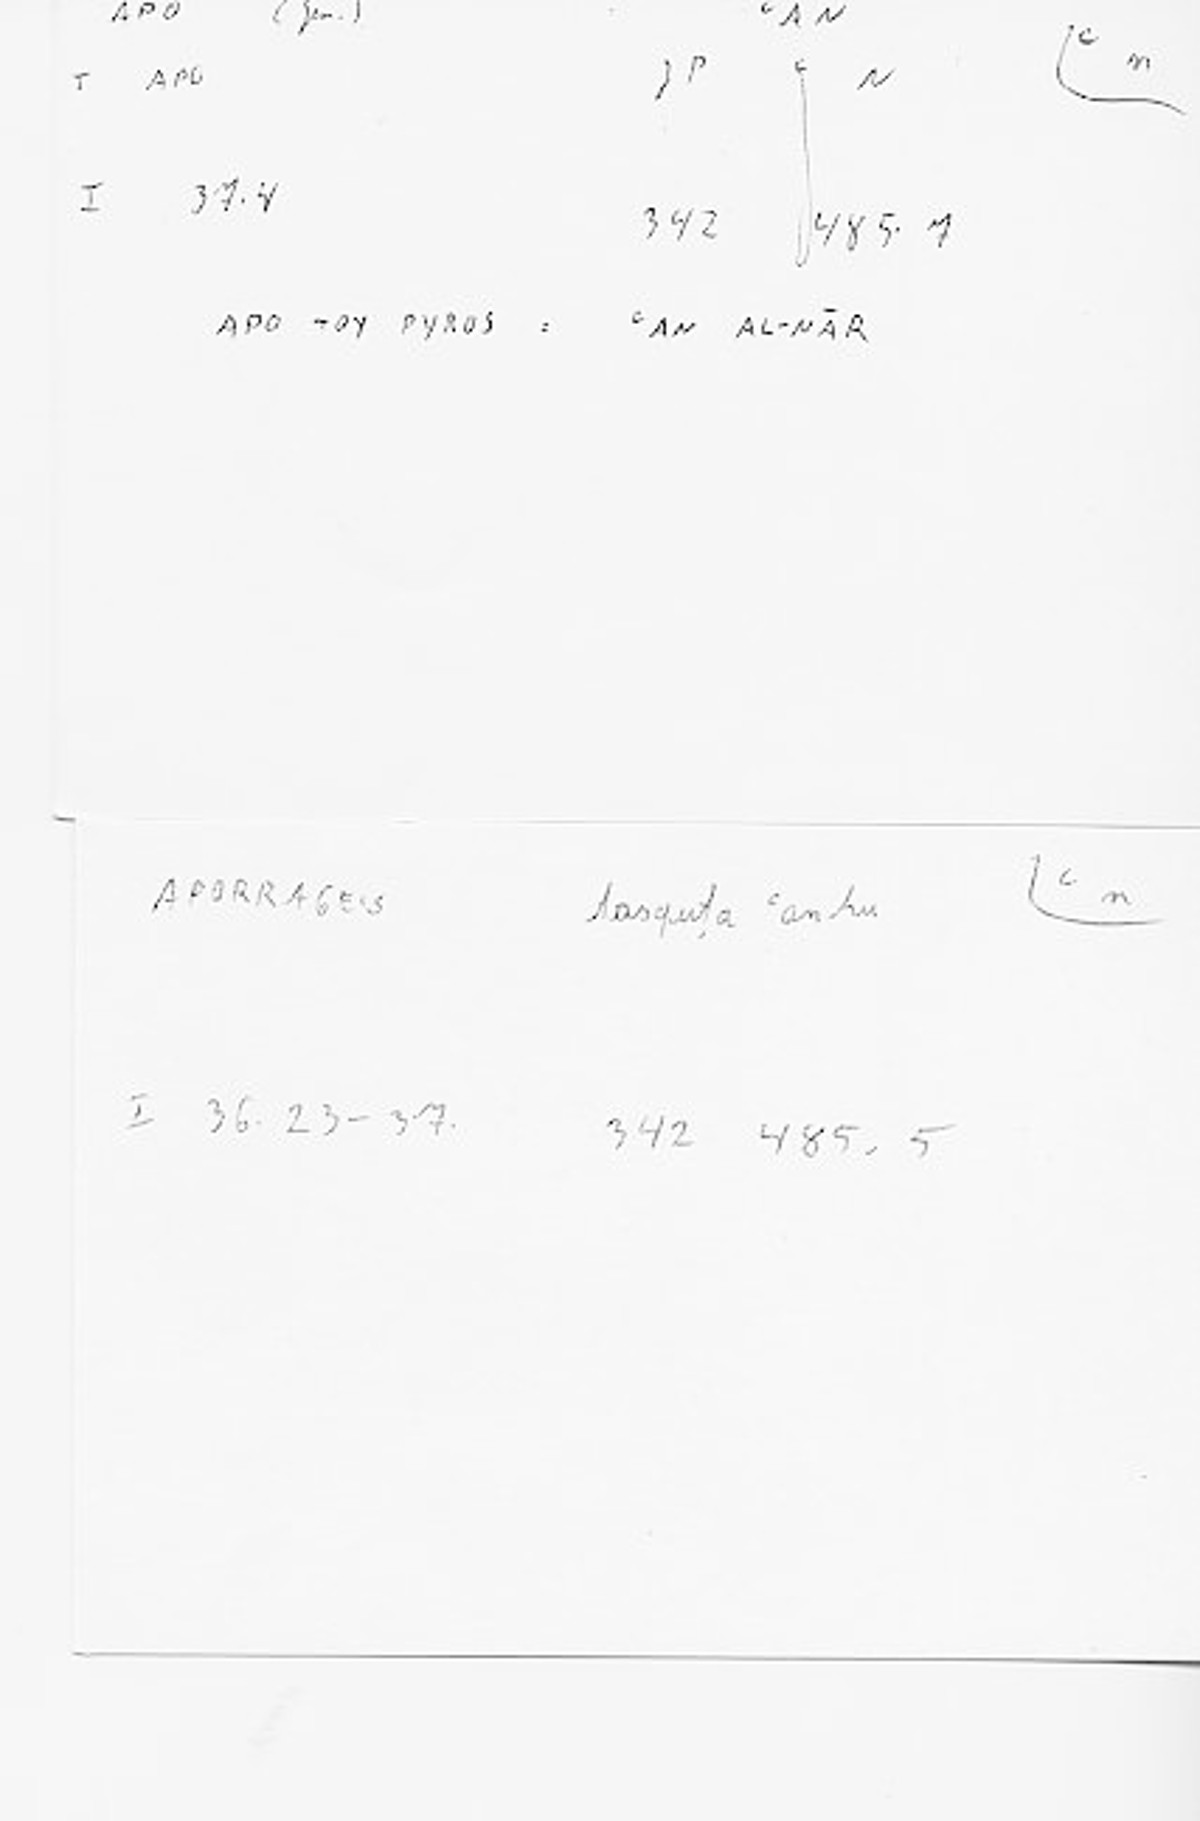 APO (gen.) ʿAN
ʿ n
I APO JP ʿ N
I 37.4
342 485.7
APO TOY PYROS : ʿAN AL-NĀR
APORRAGEIS tasquṭa ʿanhu
ʿ n
I 36.23-37.
342 485.5